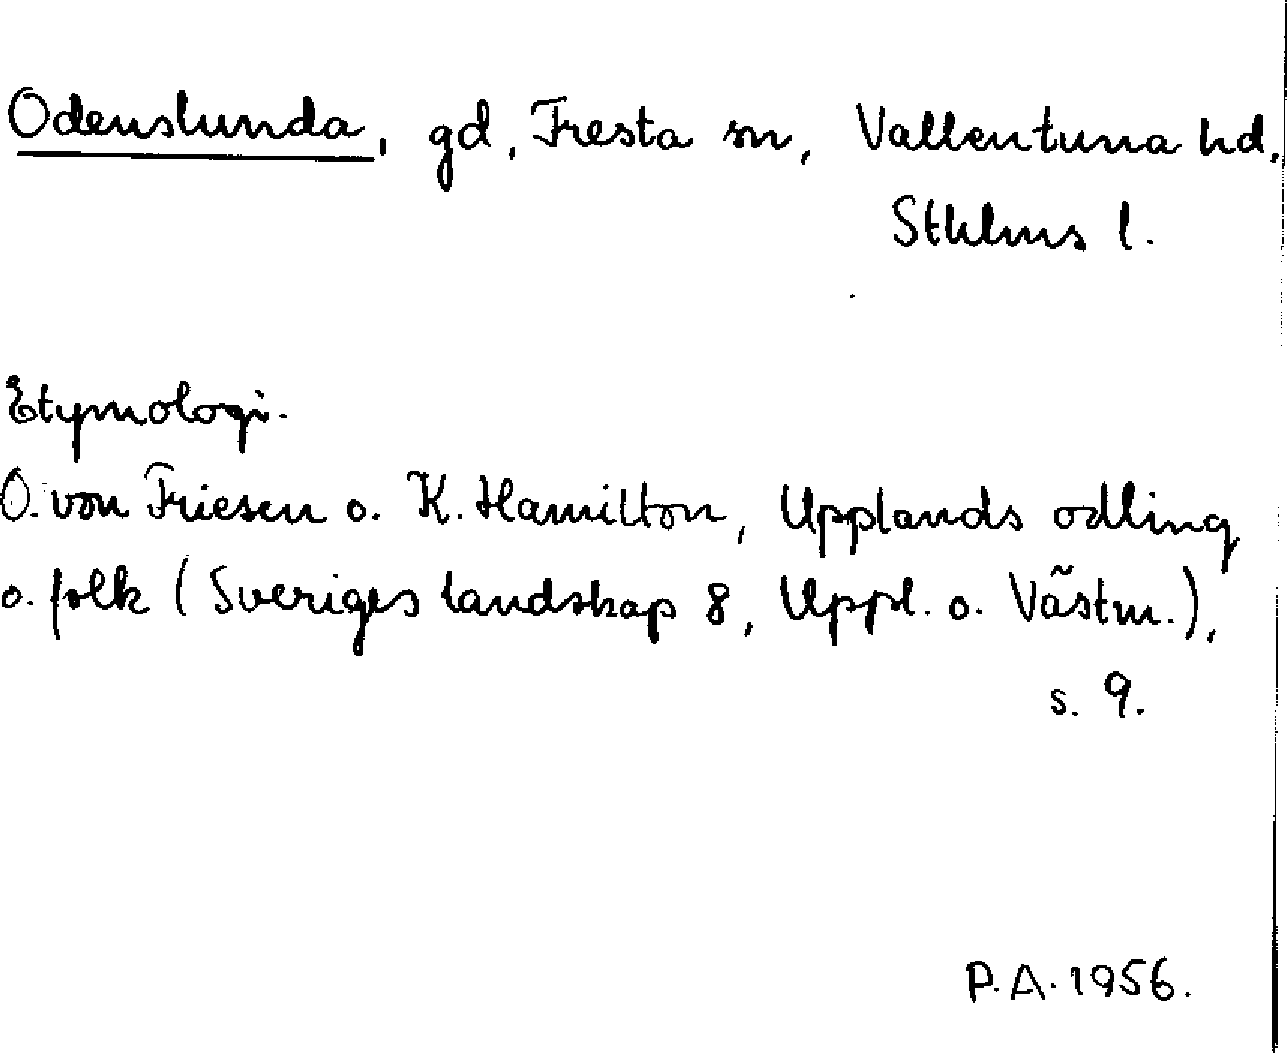 Odenslunda, gd, Fresta sn, Vallentuna hd,
Sthlms l.
Etymologi.
O. von Friesen o. K. Hamilton, Upplands odling
o. folk (Sveriges landskap 8, Uppl. o. Västm.),
s. 9.
P.A. 1956.